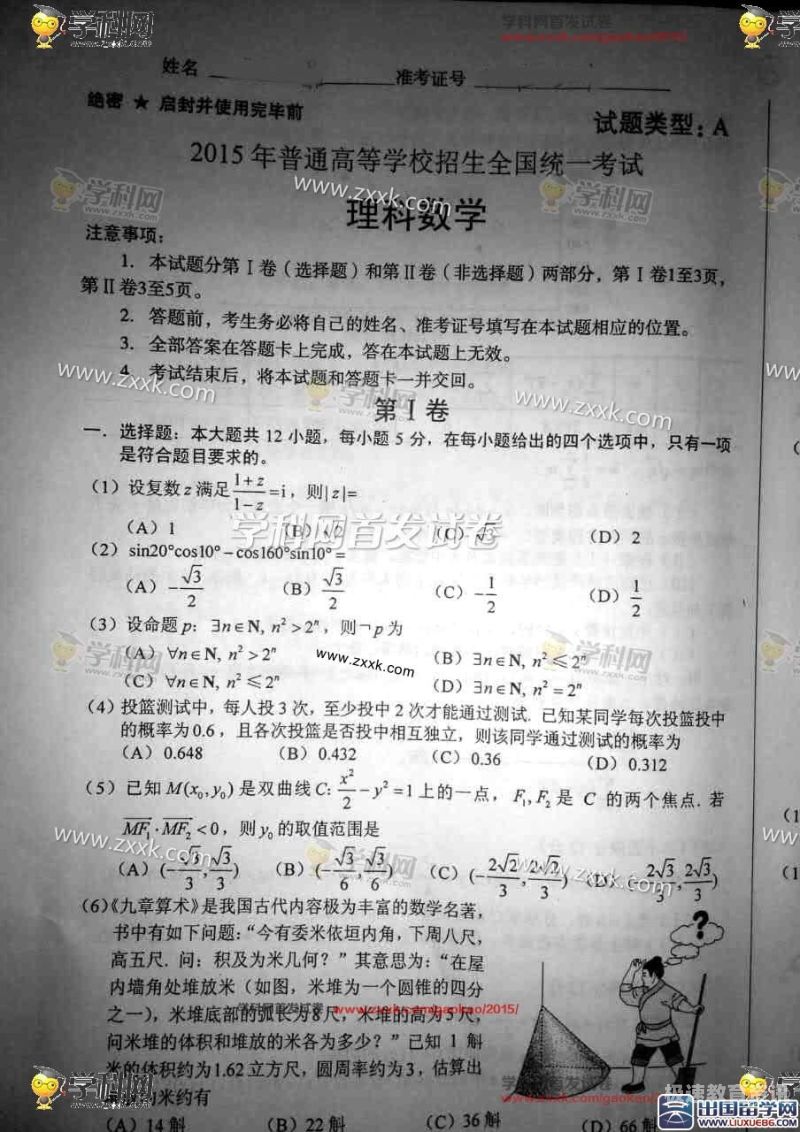 学科网首发试卷
www.zxxk.com/gaokao/2015/
姓名 准考证号
绝密 ★ 启封并使用完毕前
试题类型: A
2015 年普通高等学校招生全国统一考试
学科网 www.zxxk.com
理科数学
注意事项:
1. 本试题分第 I 卷 (选择题) 和第 II 卷 (非选择题) 两部分, 第 I 卷1至3页,
第 II 卷3至5页。
2. 答题前, 考生务必将自己的姓名、准考证号填写在本试题相应的位置。
3. 全部答案在答题卡上完成, 答在本试题上无效。
4. 考试结束后, 将本试题和答题卡一并交回。
www.zxxk.com
www.zxxk.com
第 I 卷
一. 选择题: 本大题共 12 小题, 每小题 5 分, 在每小题给出的四个选项中, 只有一项
是符合题目要求的。
(1) 设复数 z 满足 (1+z)/(1−z) =i, 则|z|=
学科网首发试卷
(A) 1 (B) √2 (C) √3 (D) 2
(2) sin20°cos10° − cos160°sin10° =
(A) −√3/2 (B) √3/2 (C) −1/2 (D) 1/2
(3) 设命题 p: ∃n∈N, n²>2ⁿ, 则¬p 为
(A) ∀n∈N, n²>2ⁿ (B) ∃n∈N, n²≤2ⁿ
www.zxxk.com
(C) ∀n∈N, n²≤2ⁿ (D) ∃n∈N, n²=2ⁿ
(4) 投篮测试中, 每人投 3 次, 至少投中 2 次才能通过测试. 已知某同学每次投篮投中
的概率为 0.6, 且各次投篮是否投中相互独立, 则该同学通过测试的概率为
(A) 0.648 (B) 0.432 (C) 0.36 (D) 0.312
(5) 已知 M(x₀,y₀) 是双曲线 C: x²/2 − y² =1 上的一点, F₁,F₂ 是 C 的两个焦点. 若
MF₁·MF₂ <0, 则 y₀ 的取值范围是
www.zxxk.com
www.zxxk.com
(A) (−√3/3, √3/3) (B) (−√3/6, √3/6) (C) (−2√2/3, 2√2/3) (D) (−2√3/3, 2√3/3)
(6)《九章算术》是我国古代内容极为丰富的数学名著,
书中有如下问题: “今有委米依垣内角, 下周八尺,
高五尺. 问: 积及为米几何? ” 其意思为: “在屋
内墙角处堆放米 (如图, 米堆为一个圆锥的四分
之一), 米堆底部的弧长为8尺, 米堆的高为5尺,
学科网首发试卷 www.zxxk.com/gaokao/2015/
问米堆的体积和堆放的米各为多少? ” 已知 1 斛
米的体积约为1.62立方尺, 圆周率约为3, 估算出
堆放的米约有
(A) 14斛 (B) 22斛 (C) 36斛 (D) 66斛
?
出国留学网
WWW.LIUXUE86.COM